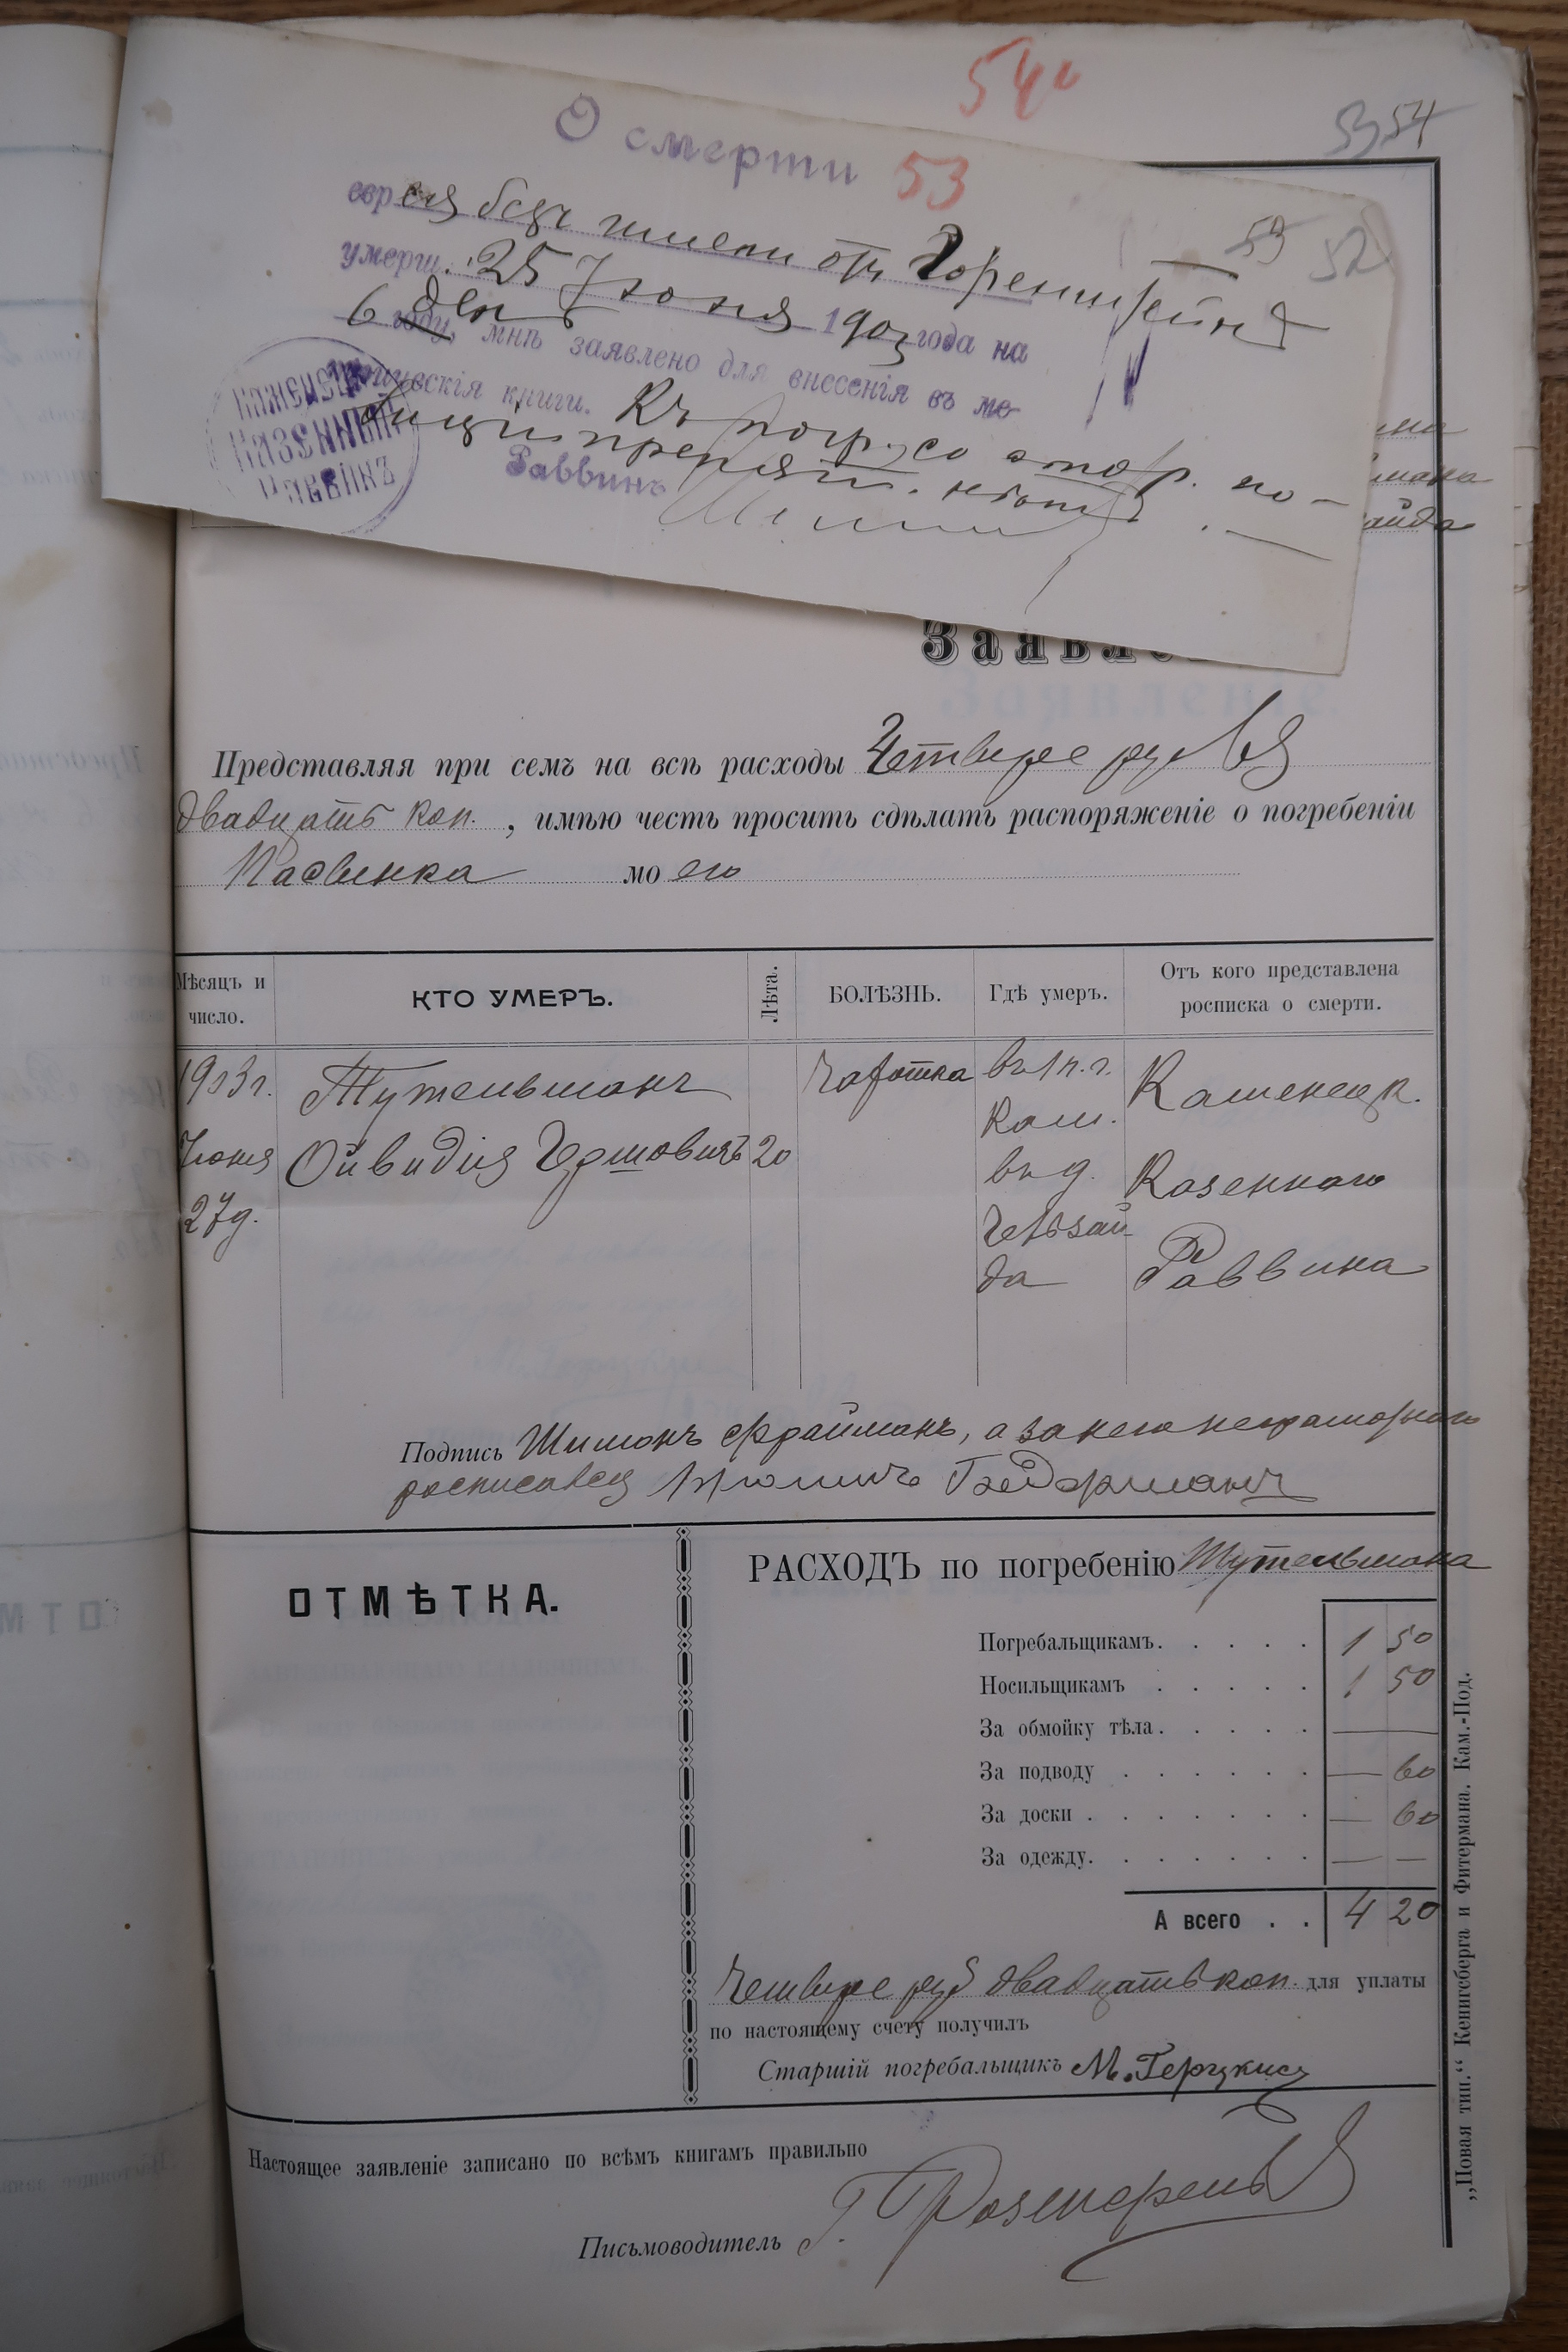 54
53 54
О смерти 53
53 52
еврея безъ имени отъ Горенштейнъ
умерш. 25 Іюня 1903 года на
6 году, ден мнѣ заявлено для внесенія въ ме-
трическія книги. Къ погр. со стор. по-
лиціи препят. нѣтъ.
Раввинъ
КАМЕНЕЦ
КАЗЕННЫЙ
РАВВИНЪ
мана
айда
Заявле
Представляя при семъ на всѣ расходы Четыре рубля
двадцать коп. , имѣю честь просить сдѣлать распоряженіе о погребеніи
Пасынка моего
Мѣсяцъ и число. КТО УМЕРЪ. Лѣта. БОЛѢЗНЬ. Гдѣ умеръ. Отъ кого представлена росписка о смерти.
1903 г. Тутельманъ Чахотка въ п. г. Каменецк.
Кам.
Іюня Овидія Гершовичъ 20 въ д. Казеннаго
27 д. Раввина
да
Подпись Шимонъ Фрайманъ, а за него неграмотнаго
росписался Бидерманъ
ОТМѢТКА.
РАСХОДЪ по погребенію Тутельмана
Погребальщикамъ. . . . . 1 50
Носильщикамъ . . . . . 1 50
За обмойку тѣла. . . . . —
За подводу . . . . . . — 60
За доски . . . . . . . — 60
За одежду. . . . . . . — —
А всего . . 4 20
Четыре руб двадцать коп. для уплаты
по настоящему счету получилъ
Старшій погребальщикъ М. Герцкисъ
Настоящее заявленіе записано по всѣмъ книгамъ правильно
Письмоводитель Г. Розенфельд
„Новая тип.“ Кенигсберга и Фитермана. Кам.-Под.